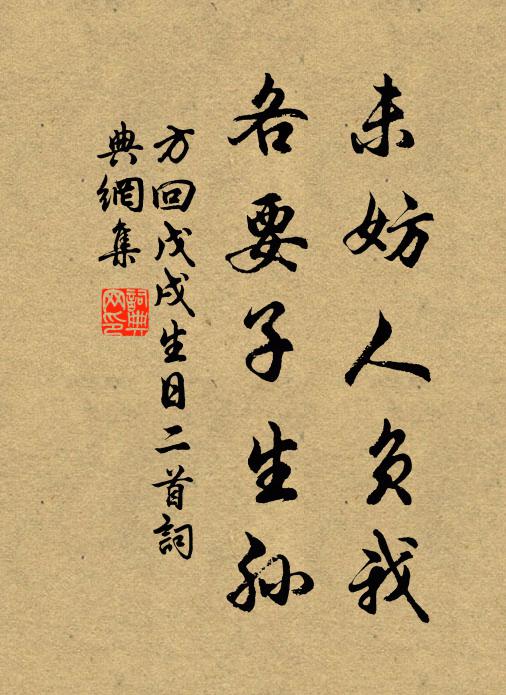 未妨人负我
各要子生孙
方回戊戌生日二首詞
典網集
詞典
网印